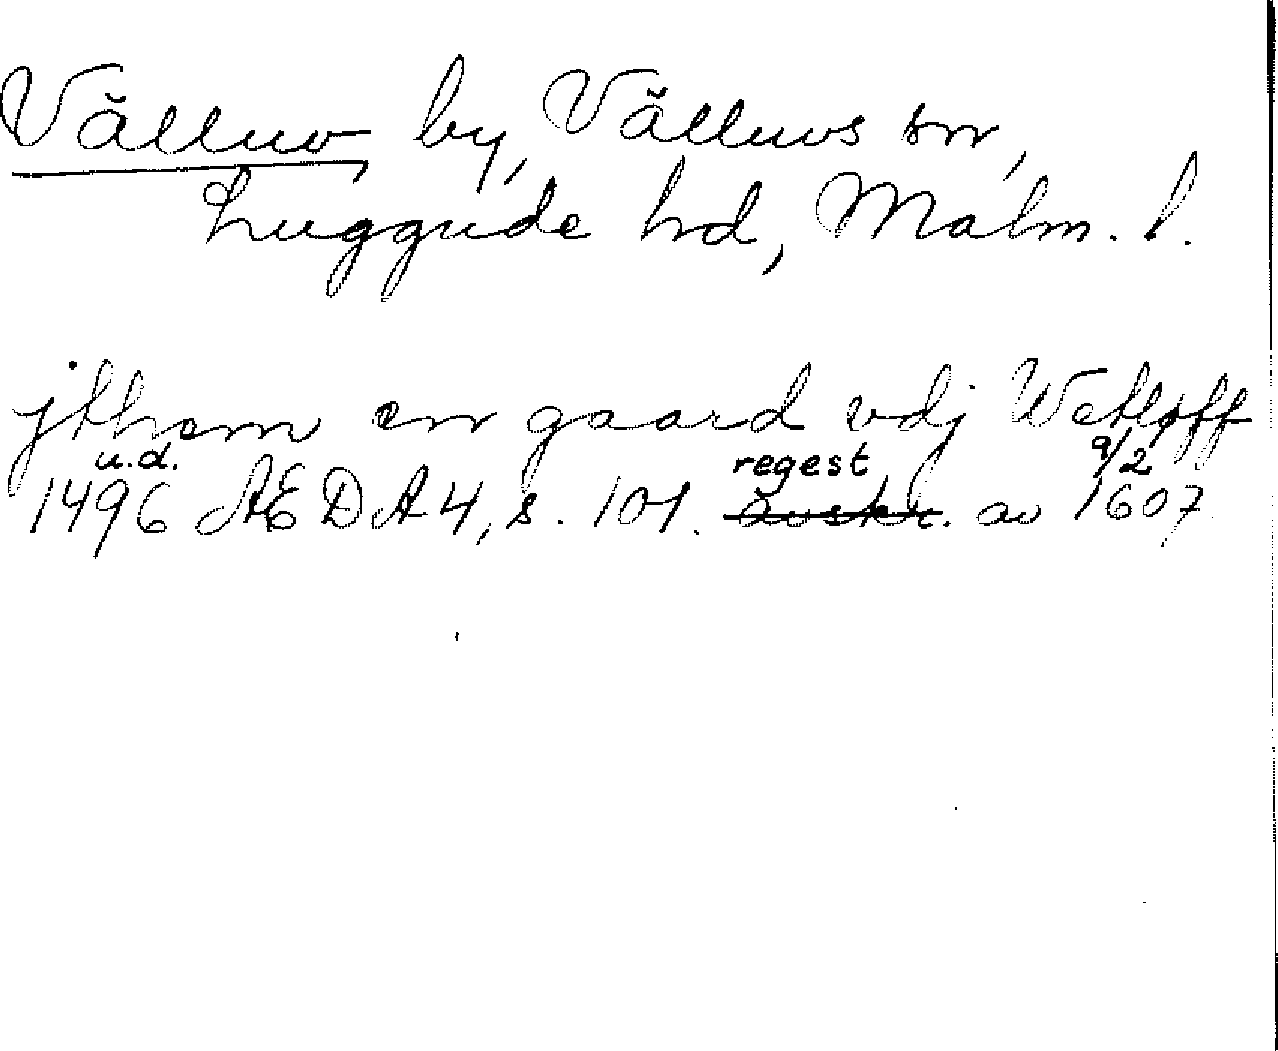 Välluv, by, Välluvs sn,
Luggude hd, Malm. l.
jthem en gaard vdj Wetløff
u.d. regest 9/2
1496 ÆDA 4, s. 101. avskr. av 1607